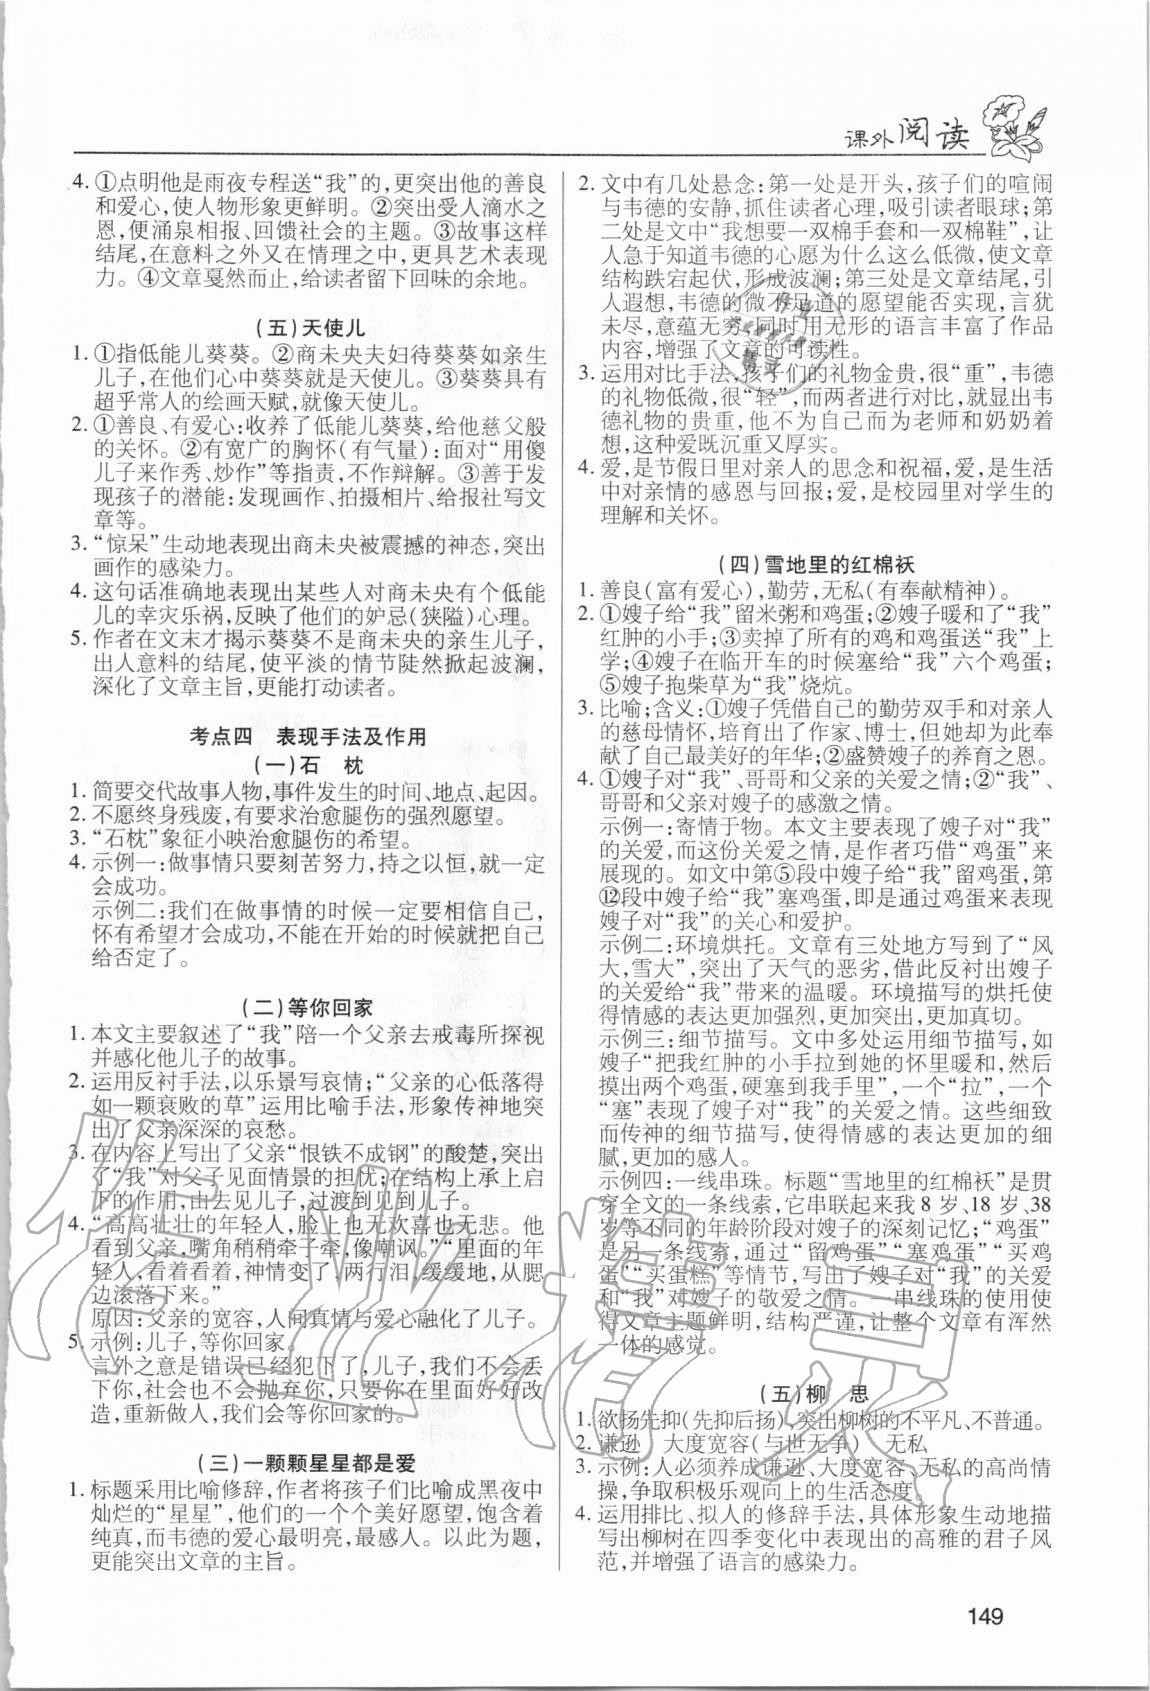 课外阅读
4. ①点明他是雨夜专程送“我”的,更突出他的善良
和爱心,使人物形象更鲜明。②突出受人滴水之
恩,便涌泉相报、回馈社会的主题。③故事这样
结尾,在意料之外又在情理之中,更具艺术表现
力。④文章戛然而止,给读者留下回味的余地。
(五)天使儿
1. ①指低能儿葵葵。②商未央夫妇待葵葵如亲生
儿子,在他们心中葵葵就是天使儿。③葵葵具有
超乎常人的绘画天赋,就像天使儿。
2. ①善良、有爱心:收养了低能儿葵葵,给他慈父般
的关怀。②有宽广的胸怀(有气量):面对“用傻
儿子来作秀、炒作”等指责,不作辩解。③善于发
现孩子的潜能:发现画作、拍摄相片、给报社写文
章等。
3. “惊呆”生动地表现出商未央被震撼的神态,突出
画作的感染力。
4. 这句话准确地表现出某些人对商未央有个低能
儿的幸灾乐祸,反映了他们的妒忌(狭隘)心理。
5. 作者在文末才揭示葵葵不是商未央的亲生儿子,
出人意料的结尾,使平淡的情节陡然掀起波澜,
深化了文章主旨,更能打动读者。
考点四 表现手法及作用
(一)石 枕
1. 简要交代故事人物,事件发生的时间、地点、起因。
2. 不愿终身残废,有要求治愈腿伤的强烈愿望。
3. “石枕”象征小映治愈腿伤的希望。
4. 示例一:做事情只要刻苦努力,持之以恒,就一定
会成功。
示例二:我们在做事情的时候一定要相信自己,
怀有希望才会成功,不能在开始的时候就把自己
给否定了。
(二)等你回家
1. 本文主要叙述了“我”陪一个父亲去戒毒所探视
并感化他儿子的故事。
2. 运用反衬手法,以乐景写哀情;“父亲的心低落得
如一颗衰败的草”运用比喻手法,形象传神地突
出了父亲深深的哀愁。
3. 在内容上写出了父亲“恨铁不成钢”的酸楚,突出
了“我”对父子见面情景的担忧;在结构上承上启
下的作用,由去见儿子,过渡到见到儿子。
4. “高高壮壮的年轻人,脸上也无欢喜也无悲。他
看到父亲,嘴角稍稍牵了牵,像嘲讽。”“里面的年
轻人,看着看着,神情变了,两行泪,缓缓地,从腮
边滚落下来。”
原因:父亲的宽容,人间真情与爱心融化了儿子。
5. 示例:儿子,等你回家。
言外之意是错误已经犯下了,儿子,我们不会丢
下你,社会也不会抛弃你,只要你在里面好好改
造,重新做人,我们会等你回家的。
(三)一颗颗星星都是爱
1. 标题采用比喻修辞,作者将孩子们比喻成黑夜中
灿烂的“星星”,他们的一个个美好愿望,饱含着
纯真,而韦德的爱心最明亮、最感人。以此为题,
更能突出文章的主旨。
2. 文中有几处悬念:第一处是开头,孩子们的喧闹
与韦德的安静,抓住读者心理,吸引读者眼球;第
二处是文中“我想要一双棉手套和一双棉鞋”,让
人急于知道韦德的心愿为什么这么低微,使文章
结构跌宕起伏,形成波澜;第三处是文章结尾,引
人遐想,韦德的微不足道的愿望能否实现,言犹
未尽,意蕴无穷,同时用无形的语言丰富了作品
内容,增强了文章的可读性。
3. 运用对比手法,孩子们的礼物金贵,很“重”,韦德
的礼物低微,很“轻”,而两者进行对比,就显出韦
德礼物的贵重,他不为自己而为老师和奶奶着
想,这种爱既沉重又厚实。
4. 爱,是节假日里对亲人的思念和祝福,爱,是生活
中对亲情的感恩与回报;爱,是校园里对学生的
理解和关怀。
(四)雪地里的红棉袄
1. 善良(富有爱心),勤劳,无私(有奉献精神)。
2. ①嫂子给“我”留米粥和鸡蛋;②嫂子暖和了“我”
红肿的小手;③卖掉了所有的鸡和鸡蛋送“我”上
学;④嫂子在临开车的时候塞给“我”六个鸡蛋;
⑤嫂子抱柴草为“我”烧炕。
3. 比喻;含义:①嫂子凭借自己的勤劳双手和对亲人
的慈母情怀,培育出了作家、博士,但她却为此奉
献了自己最美好的年华;②盛赞嫂子的养育之恩。
4. ①嫂子对“我”、哥哥和父亲的关爱之情;②“我”、
哥哥和父亲对嫂子的感激之情。
示例一:寄情于物。本文主要表现了嫂子对“我”
的关爱,而这种关爱之情,是作者巧借“鸡蛋”来
展现的。如文中第⑤段中嫂子给“我”留鸡蛋,第
⑫段中嫂子给“我”塞鸡蛋,即是通过鸡蛋来表现
嫂子对“我”的关心和爱护。
示例二:环境烘托。文章有三处地方写到了“风
大,雪大”,突出了天气的恶劣,借此反衬出嫂子
的关爱给“我”带来的温暖。环境描写的烘托使
得情感的表达更加强烈,更加突出,更加真切。
示例三:细节描写。文中多处运用细节描写,如
嫂子“把我红肿的小手拉到她的怀里暖和,然后
摸出两个鸡蛋,硬塞到我手里”,一个“拉”,一个
“塞”表现了嫂子对“我”的关爱之情。这些细致
而传神的细节描写,使得情感的表达更加的细
腻,更加的感人。
示例四:一线串珠。标题“雪地里的红棉袄”是贯
穿全文的一条线索,它串联起来我 8 岁、18 岁、38
岁等不同的年龄阶段对嫂子的深刻记忆;“鸡蛋”
是另一条线索,通过“留鸡蛋”“塞鸡蛋”“买鸡
蛋”“买蛋糕”等情节,写出了嫂子对“我”的关爱
和“我”对嫂子的敬爱之情。一串线珠的使用使
得文章主题鲜明,结构严谨,让整个文章有浑然
一体的感觉。
(五)柳 思
1. 欲扬先抑(先抑后扬),突出柳树的不平凡、不普通。
2. 谦逊 大度宽容(与世无争) 无私
3. 示例:人必须养成谦逊、大度宽容、无私的高尚情
操,争取积极乐观向上的生活态度。
4. 运用排比、拟人的修辞手法,具体形象生动地描
写出柳树在四季变化中表现出的高雅的君子风
范,并增强了语言的感染力。
149
作业精灵